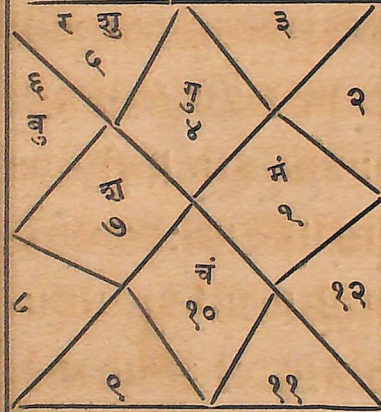 र शु
५
३
६
बु
गु
४
२
श
७
मं
१
चं
१०
८
१२
९
११